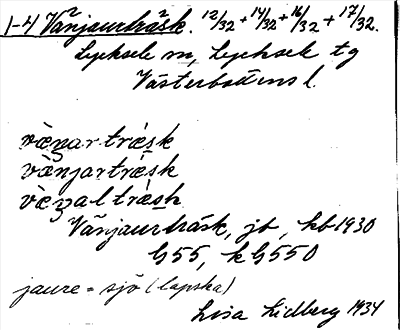 1-4 Vänjaurträsk. 12/32 + 14/32 + 16/32 + 17/32.
Lycksele sn, Lycksele tg
Västerbottens l.
vä̀ŋar. trä́sk
vä̀njarträ́sk
vä̀ŋal träsk
Vänjaurträsk, jb, kb 1930
G55, kG550
jaure = sjö (lapska)
Lisa Lidberg 1934